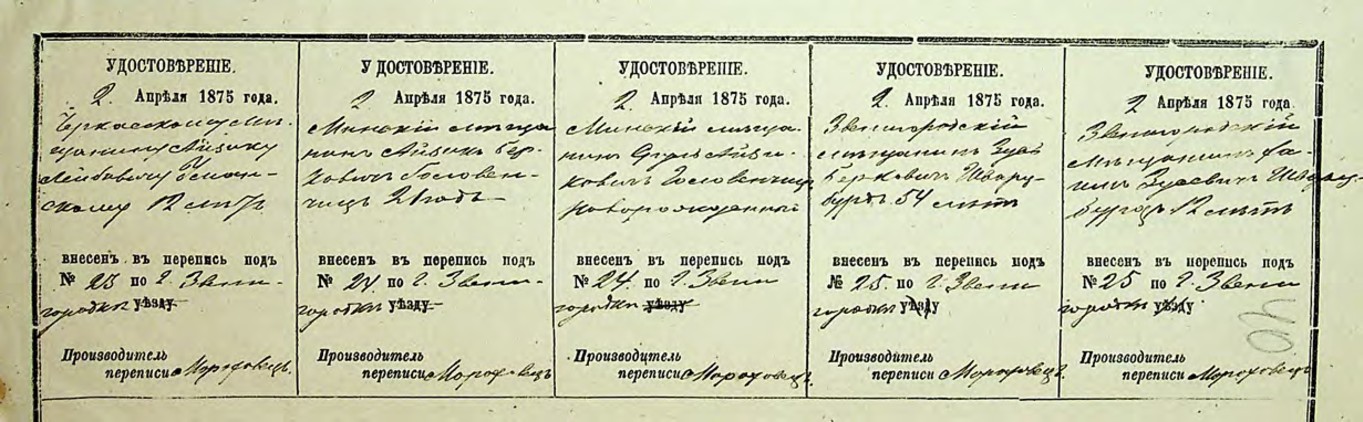 УДОСТОВѢРЕНІЕ.
2 Апрѣля 1875 года.
Черкасскому мѣ-
щанину Айзику
Лейбовичу
скому 12 лѣтъ
внесенъ въ перепись подъ
№ 23 по г. Звени-
городкѣ уѣзду
Производитель
переписи Мороховецъ.
УДОСТОВѢРЕНІЕ.
2 Апрѣля 1875 года.
Минскій мѣща
нинъ Айзикъ Бер-
ковичъ Головен-
чицъ 21 годъ
внесенъ въ перепись подъ
№ 24 по г. Звени-
городкѣ уѣзду
Производитель
переписи Мороховецъ
УДОСТОВѢРЕНІЕ.
2 Апрѣля 1875 года.
Минскій мѣща-
нинъ Айзи-
ковичъ Головенчицъ
новорожденный
внесенъ въ перепись подъ
№ 24 по г. Звени
городкѣ уѣзду
Производитель
переписи Мороховецъ.
УДОСТОВѢРЕНІЕ.
2 Апрѣля 1875 года.
Звенигородскій
мѣщанинъ
Берковичъ
54 лѣтъ
внесенъ въ перепись подъ
№ 25 по г. Звени
городкѣ уѣзду
Производитель
переписи Мороховецъ.
УДОСТОВѢРЕНІЕ.
2 Апрѣля 1875 года
Звенигородскій
мѣщанинъ
12 лѣтъ
внесенъ въ перепись подъ
№ 25 по г. Звени
городкѣ уѣзду
Производитель
переписи Мороховецъ